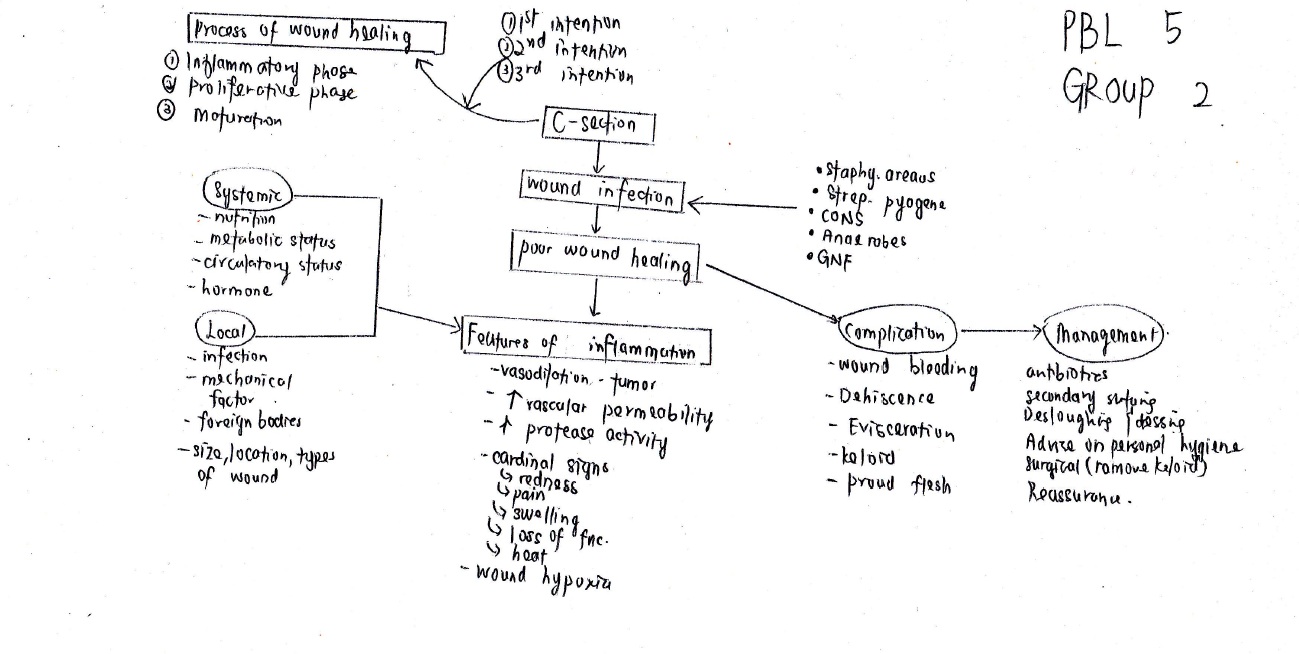 PBL 5
GROUP 2
Process of wound healing
① Inflammatory phase
② Proliferative phase
③ Maturation
① 1st intention
② 2nd intention
③ 3rd intention
C-section
wound infection
• Staphy. areaus
• Strep. pyogene
• CONS
• Anaerobes
• GNF
poor wound healing
Systemic
- nutrition
- metabolic status
- circulatory status
- hormone
Local
- infection
- mechanical
factor
- foreign bodies
- size, location, types
of wound
Features of inflammation
- vasodilation - tumor
- ↑ vascular permeability
- ↑ protease activity
- cardinal signs
↳ redness
↳ pain
↳ swelling
↳ loss of fnc.
↳ heat
- wound hypoxia
Complication
- wound bleeding
- Dehiscence
- Evisceration
- keloid
- proud flesh
Management
antibiotics
secondary
Desloughing
Advise on personal hygiene
surgical (remove keloid)
Reassurance.